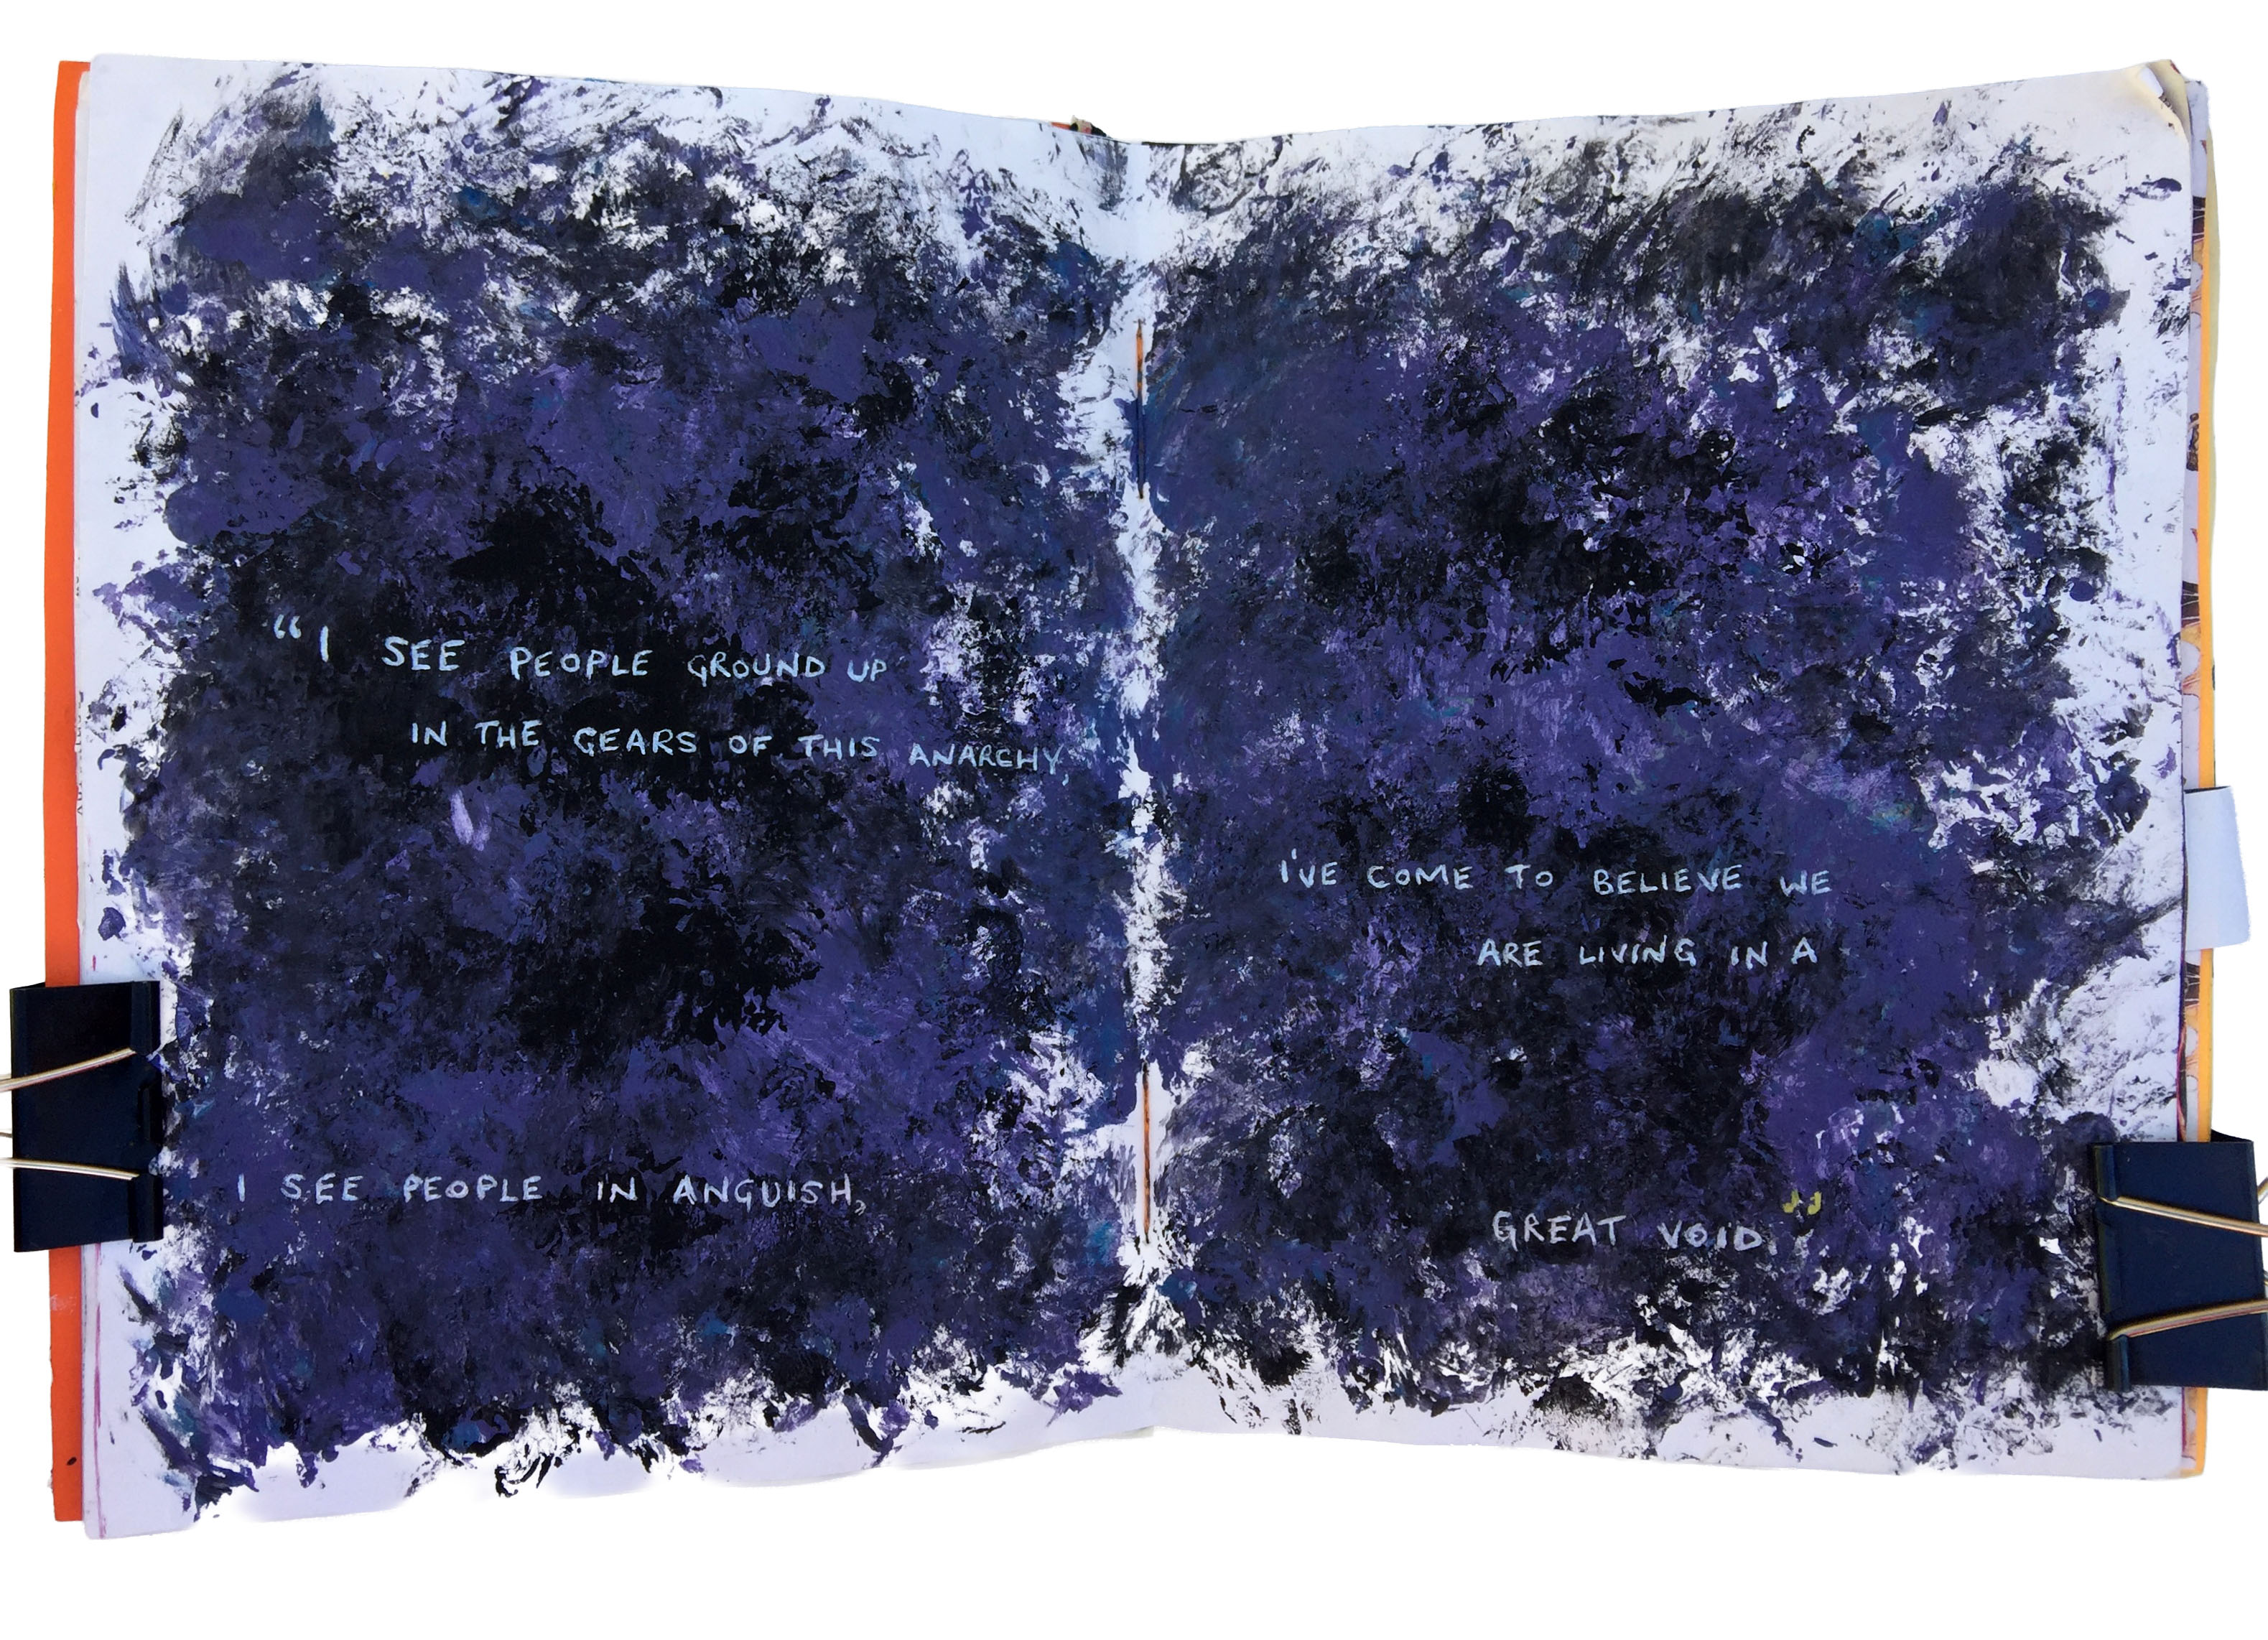 “I SEE PEOPLE GROUND UP
IN THE GEARS OF THIS ANARCHY,
I SEE PEOPLE IN ANGUISH,
I'VE COME TO BELIEVE WE
ARE LIVING IN A
GREAT VOID.”